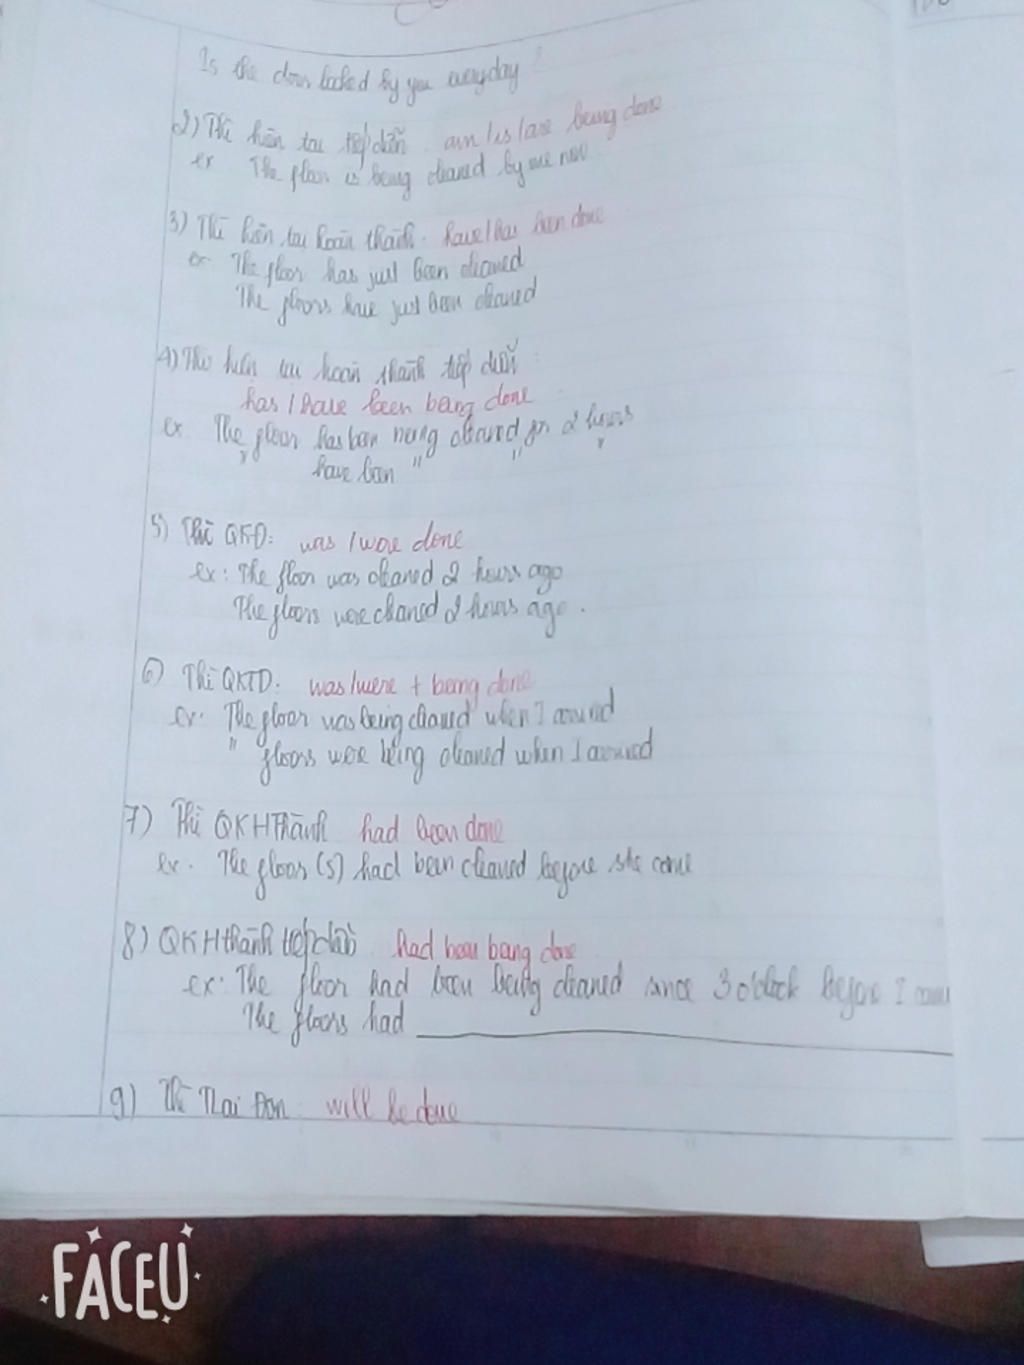 Is the door locked by you everyday ?
2) Thì hiện tại tiếp diễn am / is / are being done
ex The floor is being cleaned by me now
3) Thì hiện tại hoàn thành. have / has been done
ex The floor has just been cleaned
The floors have just been cleaned
4) Thì hiện tại hoàn thành tiếp diễn :
has / have been being done
ex The floor has been being cleaned for 2 hours
have been " "
5) Thì QKĐ: was / were done
ex: The floor was cleaned 2 hours ago
The floors were cleaned 2 hours ago.
6) Thì QKTD: was/were + being done
ex: The floor was being cleaned when I
" floors were being cleaned when I
7) Thì QKHThành had been done
ex. The floor (s) had been cleaned before she come
8) QKHthành tiếp diễn had been being done
ex: The floor had been being cleaned since 3 o'clock before I
The floors had
9) Thì TLai Đơn: will be done
FACEU